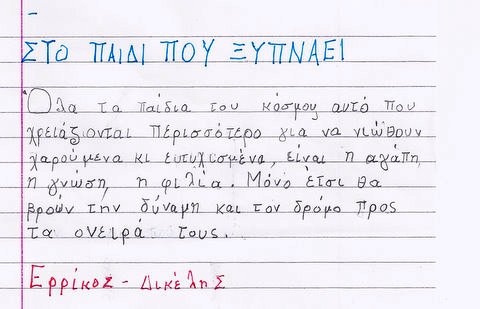 ΣΤΟ ΠΑΙΔΙ ΠΟΥ ΞΥΠΝΑΕΙ
Όλα τα παίδια του κόσμου αυτό που
χρειάζιονται περισσότερο για να νιώθουν
χαρούμενα κι ευτυχισμένα, είναι η αγάπη,
η γνώση, η φιλία. Μόνο έτσι θα
βρούν την δύναμη και τον δρόμο προς
τα ονειρά τους...
Ερρίκος - Δικέλης